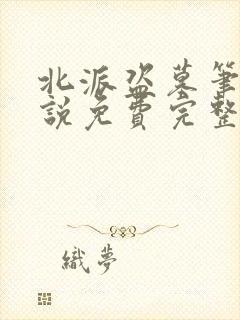 北派盗墓筆
說免費完整
織夢